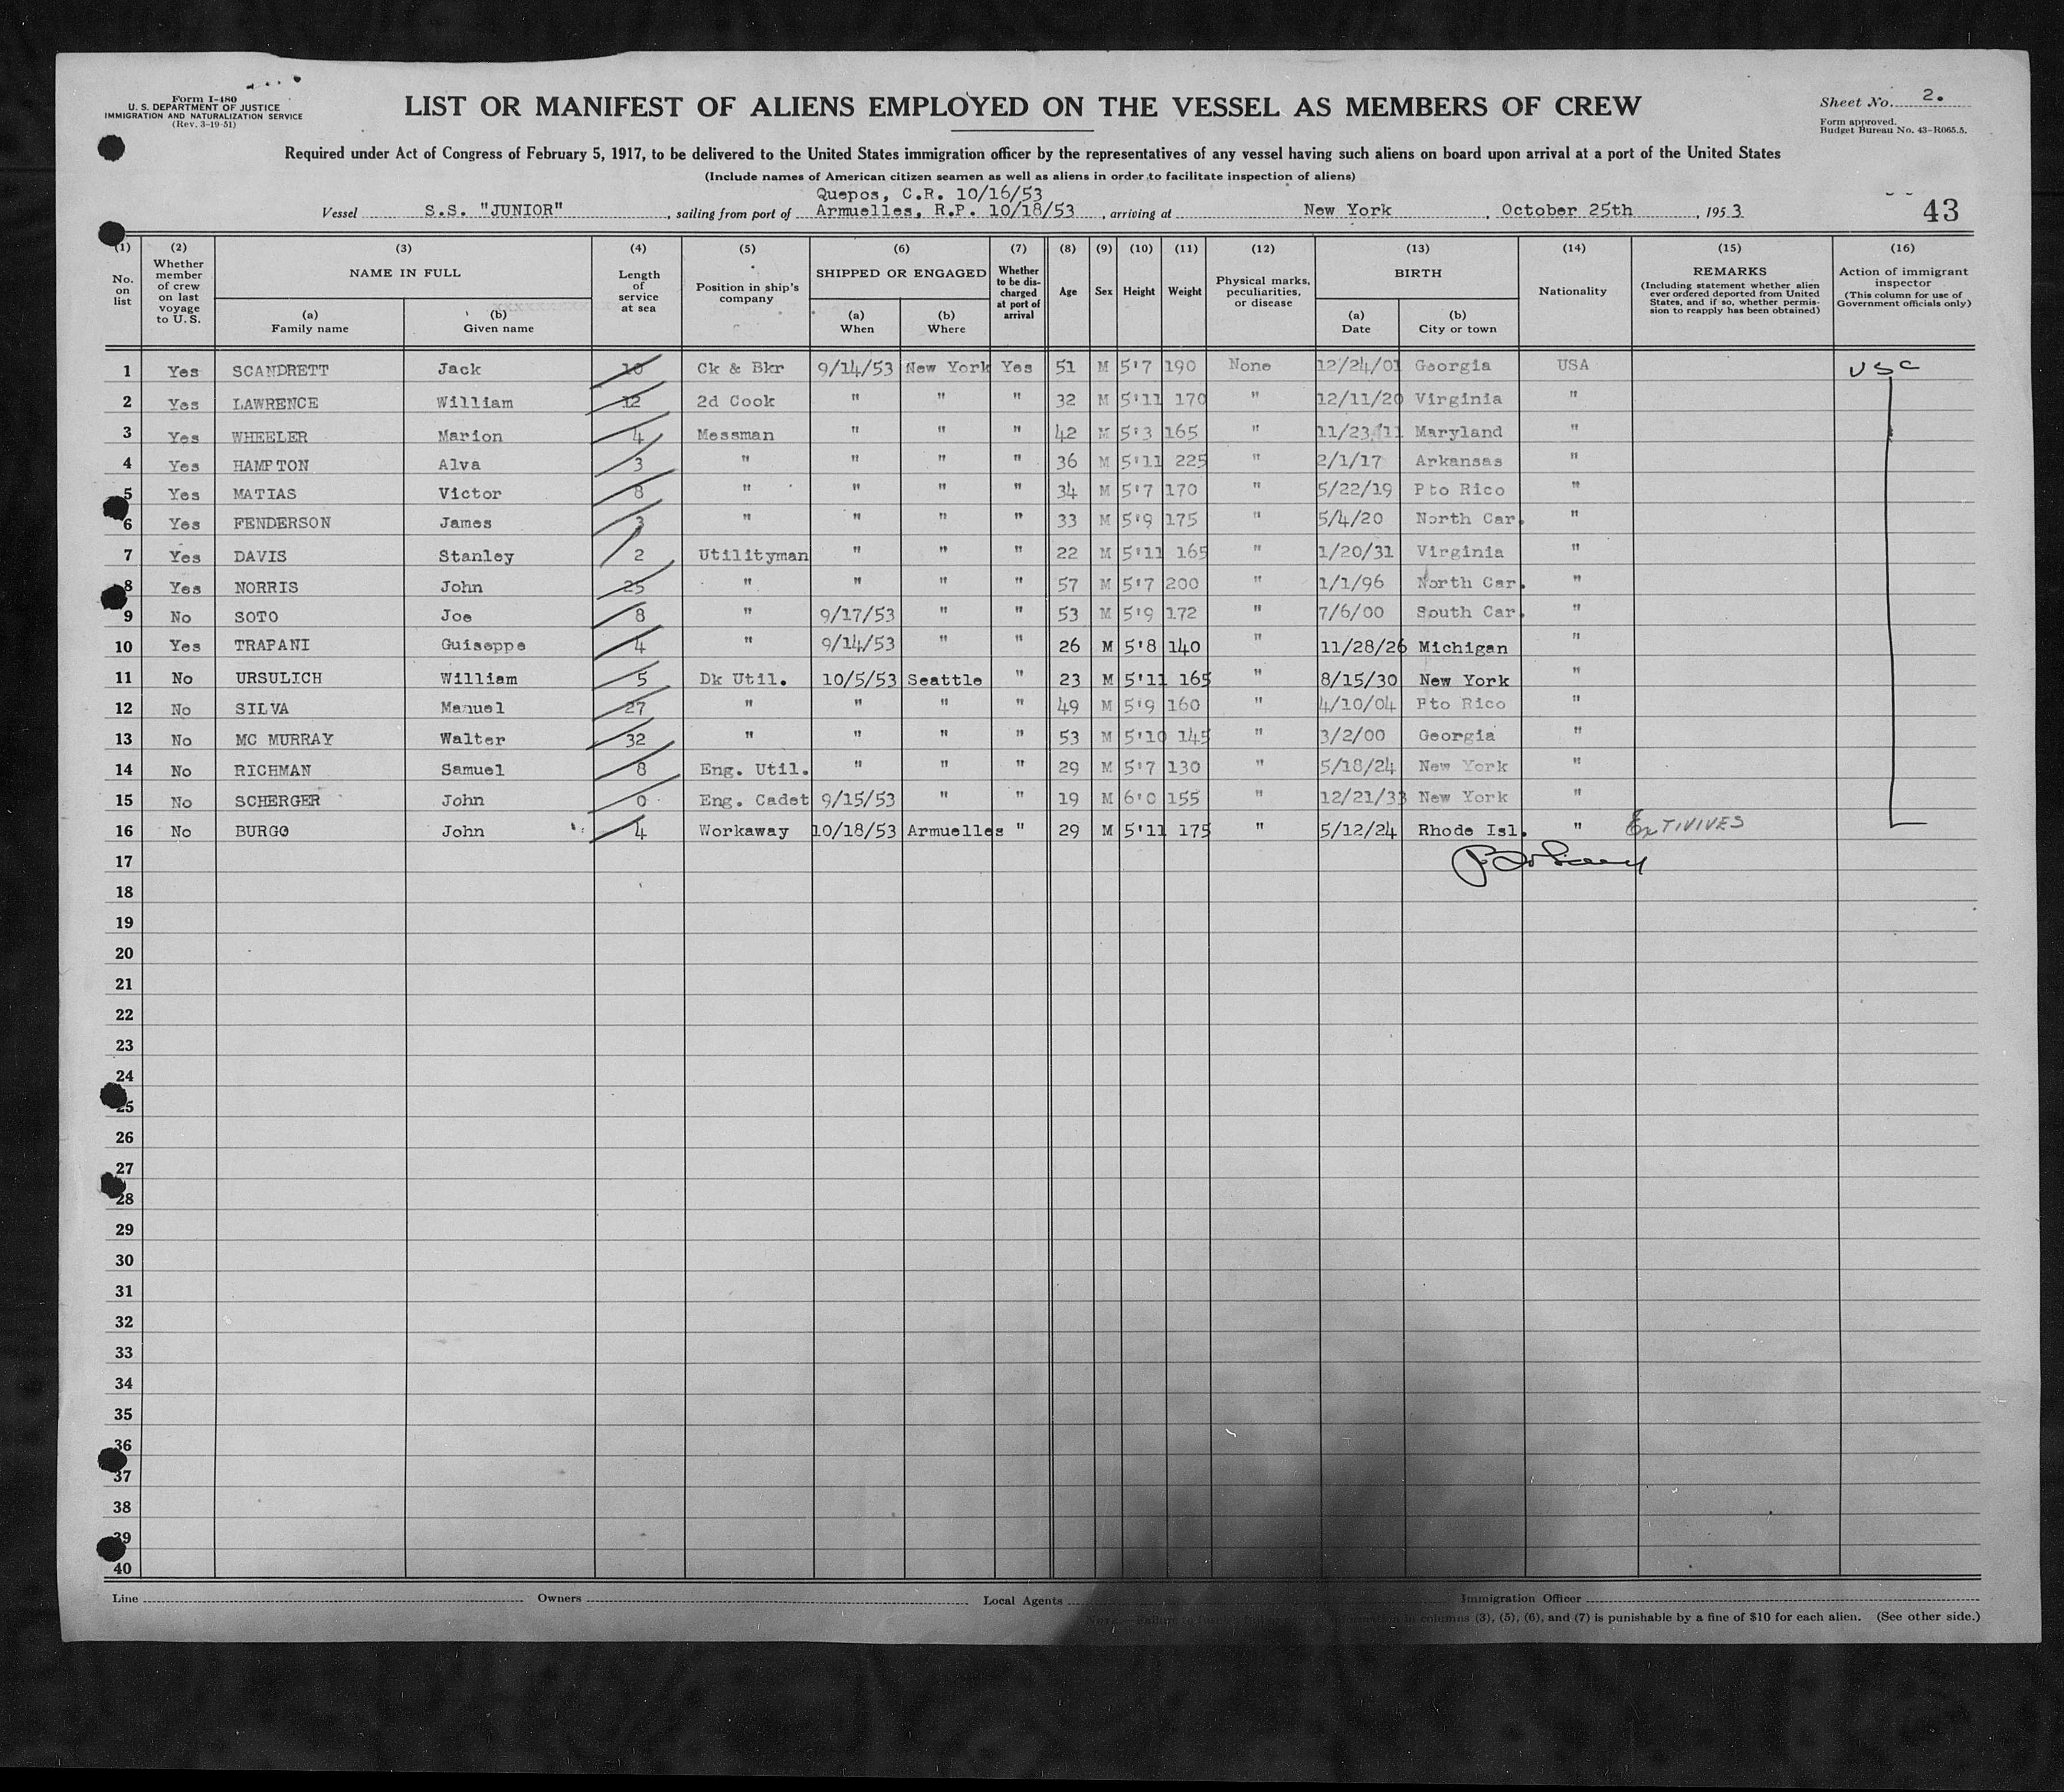 Form I-480
U. S. DEPARTMENT OF JUSTICE
IMMIGRATION AND NATURALIZATION SERVICE
(Rev. 3-19-51)
LIST OR MANIFEST OF ALIENS EMPLOYED ON THE VESSEL AS MEMBERS OF CREW
Sheet No. 2.
Form approved.
Budget Bureau No. 43-R065.5.
Required under Act of Congress of February 5, 1917, to be delivered to the United States immigration officer by the representatives of any vessel having such aliens on board upon arrival at a port of the United States
(Include names of American citizen seamen as well as aliens in order to facilitate inspection of aliens)
Quepos, C.R. 10/16/53
Vessel S.S. "JUNIOR", sailing from port of Armuelles, R.P. 10/18/53, arriving at New York, October 25th, 1953
43
(1) (2) (3) (4) (5) (6) (7) (8) (9) (10) (11) (12) (13) (14) (15) (16)
No. on list
Whether member of crew on last voyage to U. S.
NAME IN FULL
(a) Family name
(b) Given name
Length of service at sea
Position in ship's company
SHIPPED OR ENGAGED
(a) When
(b) Where
Whether to be discharged at port of arrival
Age
Sex
Height
Weight
Physical marks, peculiarities, or disease
BIRTH
(a) Date
(b) City or town
Nationality
REMARKS
(Including statement whether alien ever ordered deported from United States, and if so, whether permission to reapply has been obtained)
Action of immigrant inspector
(This column for use of Government officials only)
1 Yes SCANDRETT Jack 10 Ck & Bkr 9/14/53 New York Yes 51 M 5'7 190 None 12/24/01 Georgia USA USC
2 Yes LAWRENCE William 12 2d Cook " " " 32 M 5'11 170 " 12/11/20 Virginia "
3 Yes WHEELER Marion 4 Messman " " " 42 M 5'3 165 " 11/23/11 Maryland "
4 Yes HAMPTON Alva 3 " " " " 36 M 5'11 225 " 2/1/17 Arkansas "
5 Yes MATIAS Victor 8 " " " " 34 M 5'7 170 " 5/22/19 Pto Rico "
6 Yes FENDERSON James 3 " " " " 33 M 5'9 175 " 5/4/20 North Car. "
7 Yes DAVIS Stanley 2 Utilityman " " " 22 M 5'11 165 " 1/20/31 Virginia "
8 Yes NORRIS John 25 " " " " 57 M 5'7 200 " 1/1/96 North Car. "
9 No SOTO Joe 8 " 9/17/53 " " 53 M 5'9 172 " 7/6/00 South Car. "
10 Yes TRAPANI Guiseppe 4 " 9/14/53 " 26 M 5'8 140 " 11/28/26 Michigan "
11 No URSULICH William 5 Dk Util. 10/5/53 Seattle " 23 M 5'11 165 " 8/15/30 New York "
12 No SILVA Manuel 27 " " " " 49 M 5'9 160 " 4/10/04 Pto Rico "
13 No MC MURRAY Walter 32 " " " " 53 M 5'10 145 " 3/2/00 Georgia "
14 No RICHMAN Samuel 8 Eng. Util. " " " 29 M 5'7 130 " 5/18/24 New York "
15 No SCHERGER John 0 Eng. Cadet 9/15/53 " " 19 M 6'0 155 " 12/21/33 New York "
16 No BURGO John 4 Workaway 10/18/53 Armuelles " 29 M 5'11 175 " 5/12/24 Rhode Isl. " Ex TIVIVES
17
18
19
20
21
22
23
24
25
26
27
28
29
30
31
32
33
34
35
36
37
38
39
40
Line Owners Local Agents Immigration Officer
information in columns (3), (5), (6), and (7) is punishable by a fine of $10 for each alien. (See other side.)